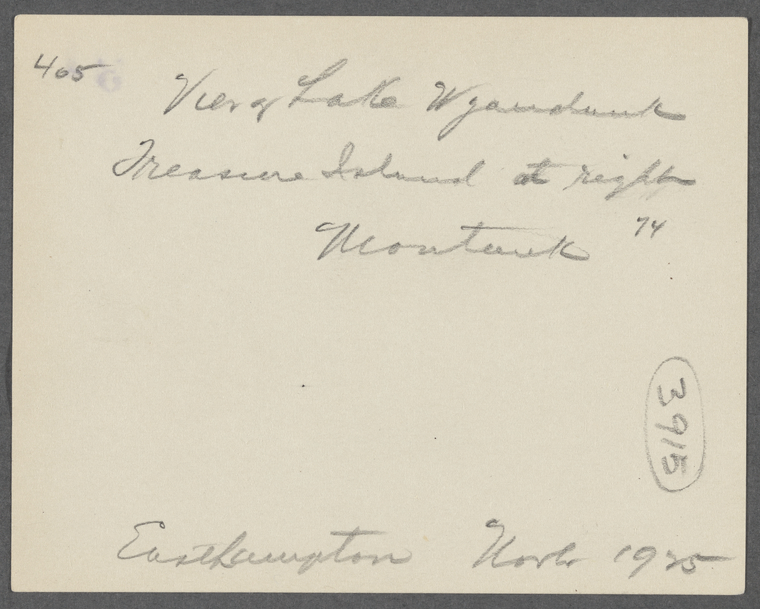 405
View of Lake Wyandunk
Treasure Island at right
Montauk 74
3915
Easthampton Nov 1925